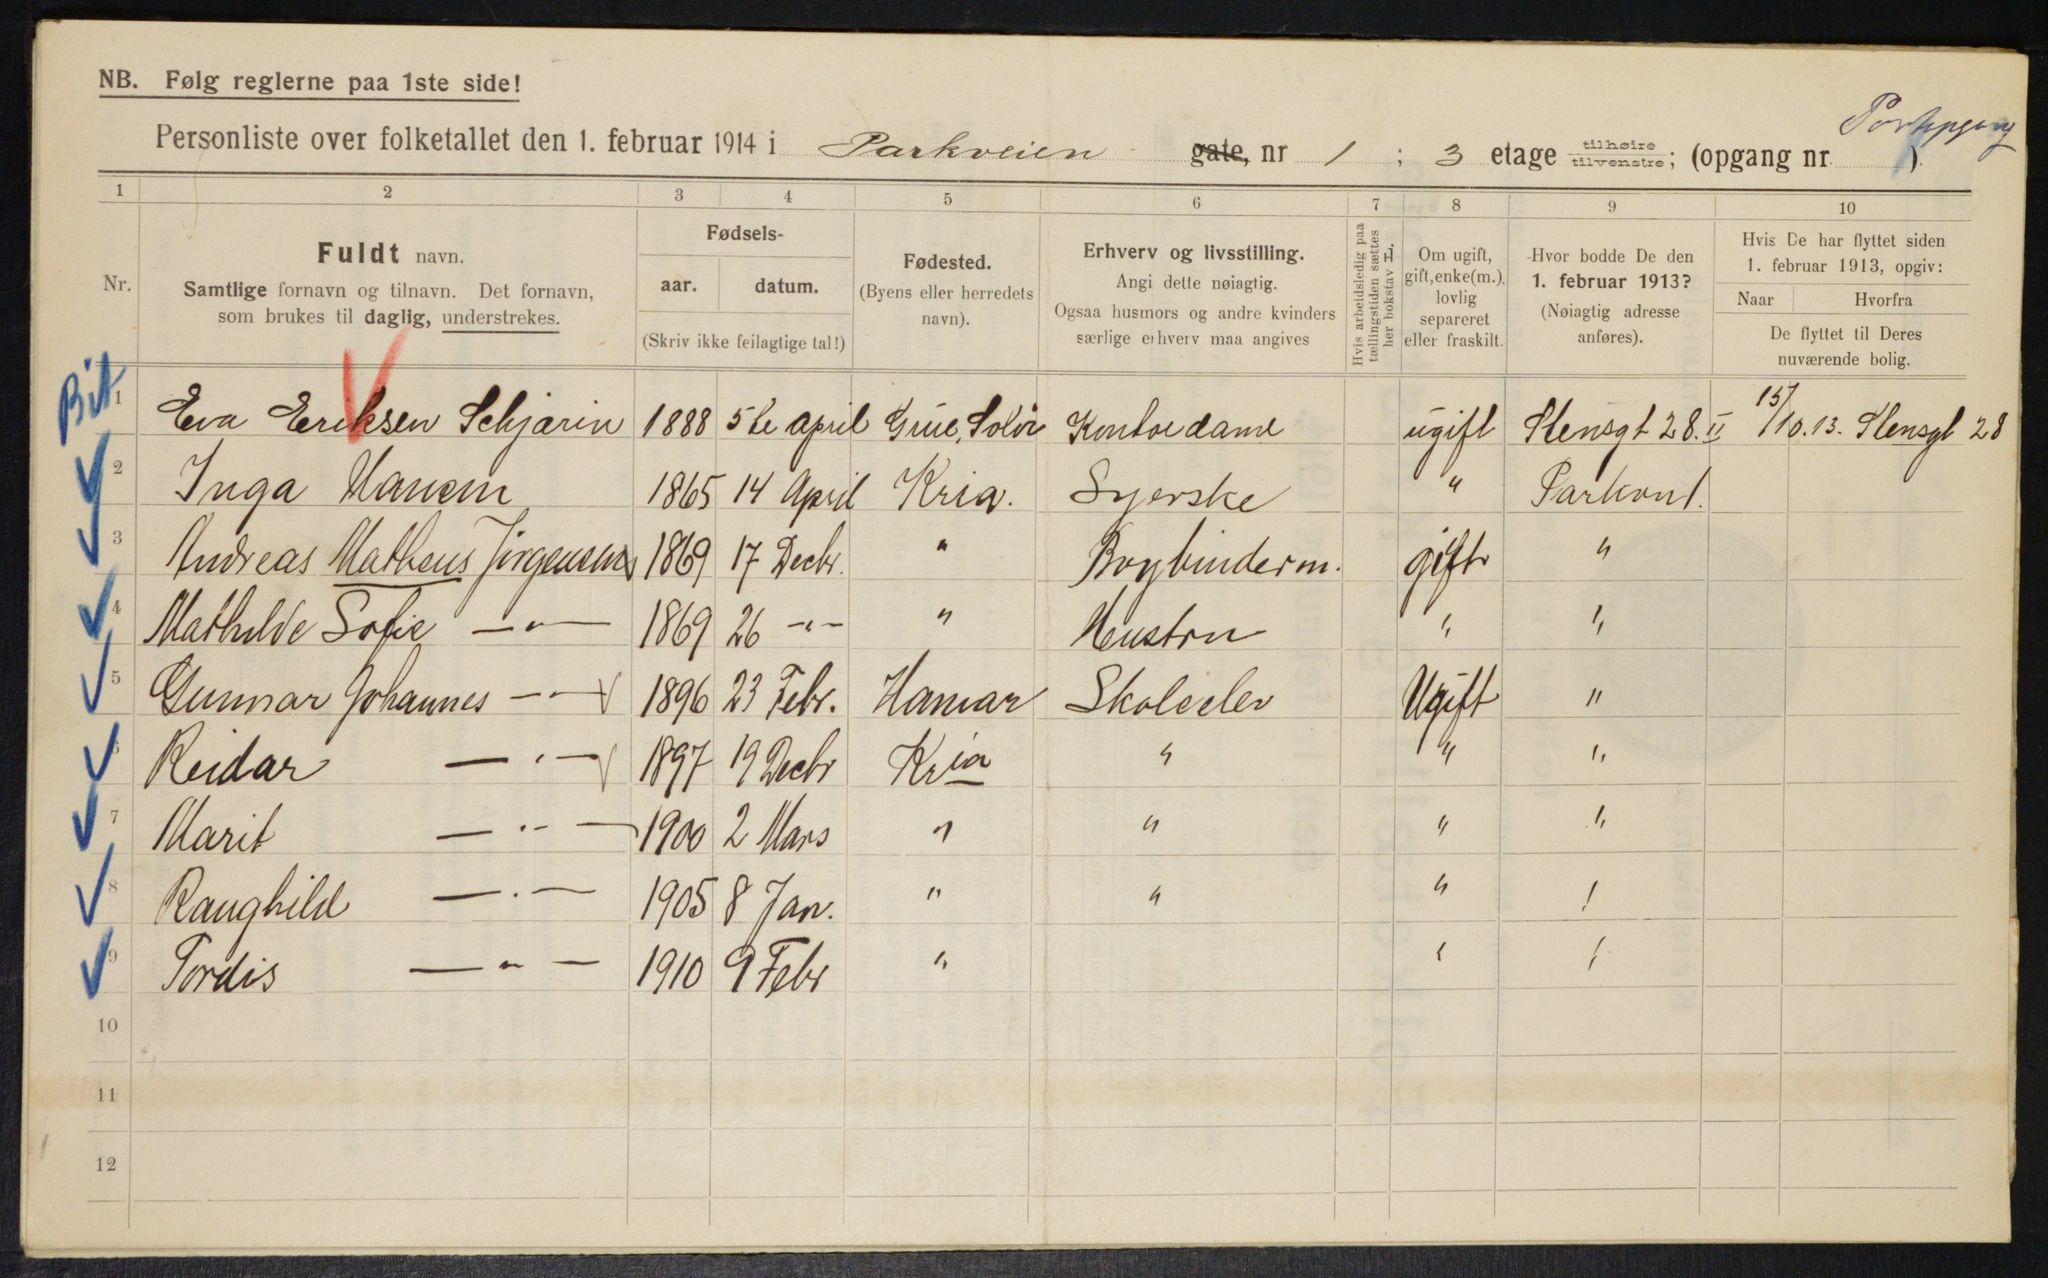 NB. Følg reglerne paa 1ste side!
Personliste over folketallet den 1. februar 1914 i Parkveien gate, nr 1 ; 3 etage tilhøire tilvenstre; (opgang nr ).
1 2 3 4 5 6 7 8 9 10
Nr.
Fuldt navn.
Samtlige fornavn og tilnavn. Det fornavn,
som brukes til daglig, understrekes.
Fødsels-
aar. datum.
(Skriv ikke feilagtige tal!)
Fødested.
(Byens eller herredets
navn).
Erhverv og livsstilling.
Angi dette nøiagtig.
Ogsaa husmors og andre kvinders
særlige erhverv maa angives
Hvis arbeidsledig paa
tællingstiden sættes
her bokstav L.
Om ugift,
gift, enke(m.),
lovlig
separeret
eller fraskilt.
Hvor bodde De den
1. februar 1913?
(Nøiagtig adresse
anføres).
Hvis De har flyttet siden
1. februar 1913, opgiv:
Naar Hvorfra
De flyttet til Deres
nuværende bolig.
1 Eva Eriksen Schjærin 1888 5te april Grue, Solør Kontordame ugift Stensgt 28. II 15/10.13. Stensgt 28
2 Inga Hansen 1865 14 April Kria. Syerske " Parkv 1.
3 Andreas Matheus Jørgensen 1869 17 Decbr. " Bogbinderm. gift "
4 Mathilde Sofie —"— 1869 26 —"— " Hustru " "
5 Gunnar Johannes —"— 1896 23 Febr. Hamar Skoleelev Ugift "
6 Reidar —"— 1897 19 Decbr Kria " " "
7 Marit —"— 1900 2 Mars " " " "
8 Raughild —"— 1905 8 Jan. " " " "
9 Tordis —"— 1910 9 Febr " " "
10
11
12